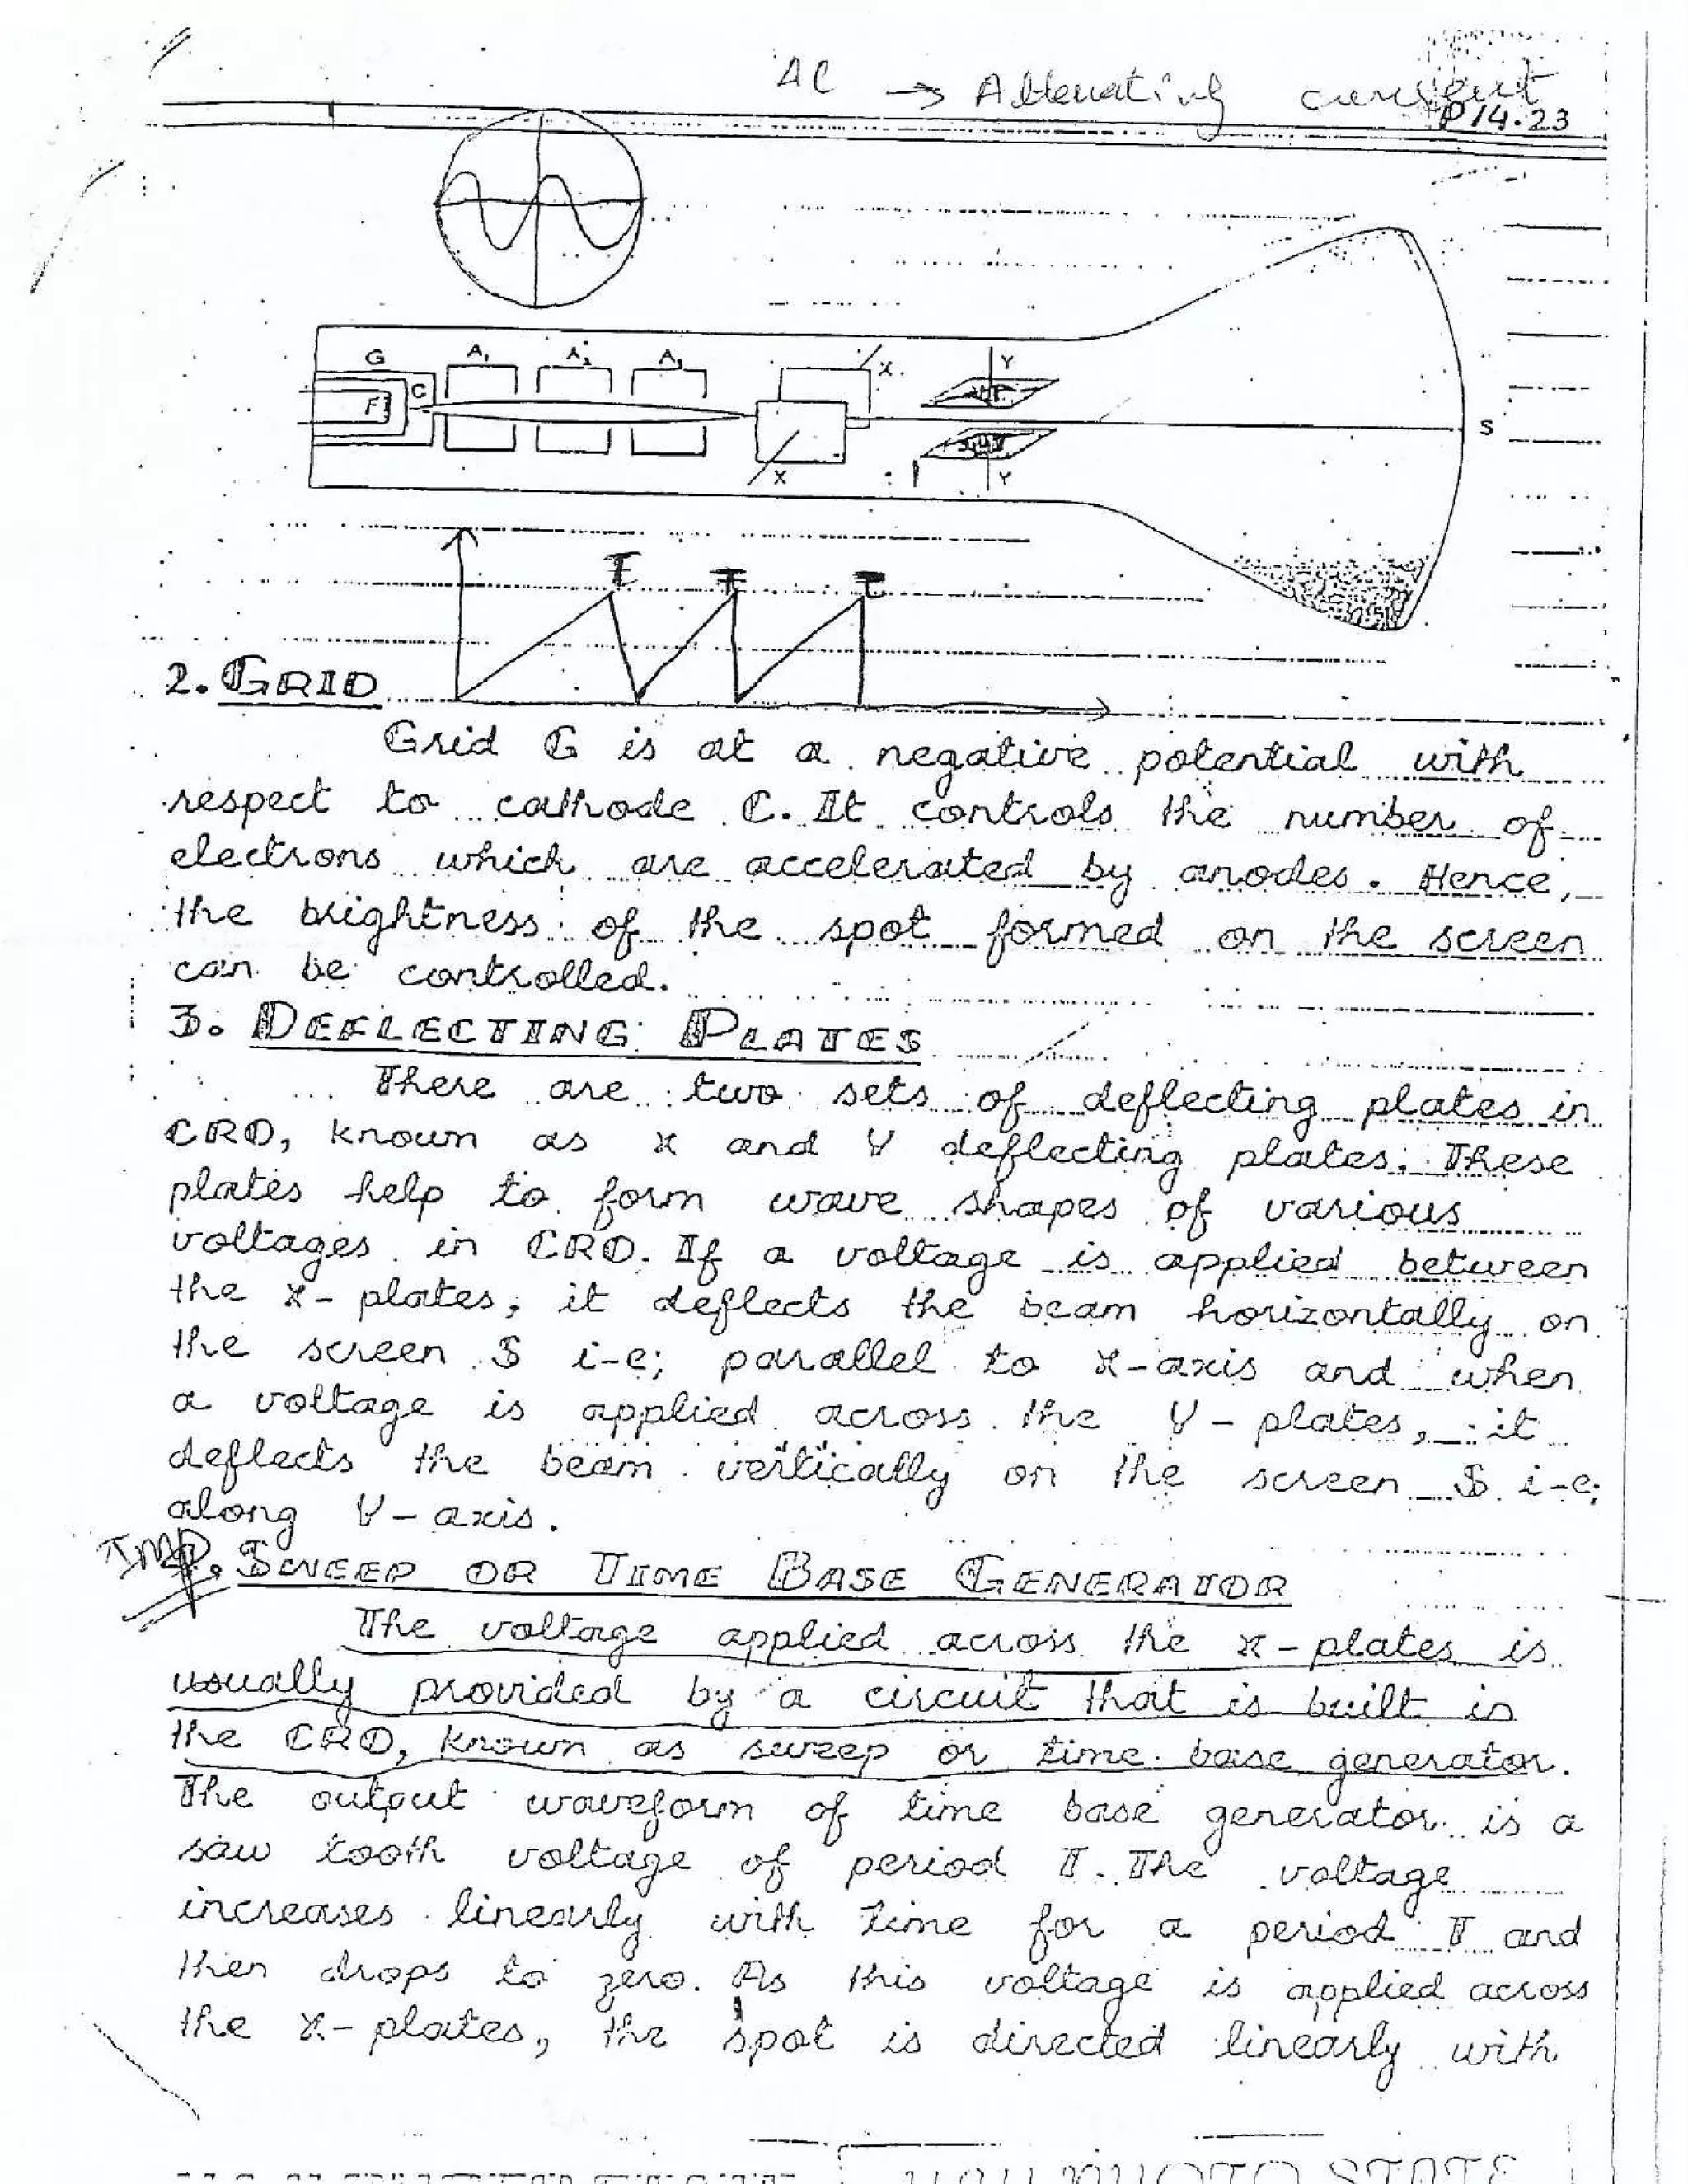 AC → Alternating current
P14.23
G A₁ A₂ A₃ X Y
F C
S
X Y
T T T
2. GRID
Grid G is at a negative potential with
respect to cathode C. It controls the number of
electrons which are accelerated by anodes. Hence,
the brightness of the spot formed on the screen
can be controlled.
3. DEFLECTING PLATES
There are two sets of deflecting plates in
CRO, known as X and Y deflecting plates. These
plates help to form wave shapes of various
voltages in CRO. If a voltage is applied between
the X-plates, it deflects the beam horizontally on
the screen S i-e; parallel to X-axis and when
a voltage is applied across the Y-plates, it
deflects the beam vertically on the screen S i-e;
along Y-axis.
IMP. SWEEP OR TIME BASE GENERATOR
The voltage applied across the X-plates is
usually provided by a circuit that is built in
the CRO, known as sweep or time base generator.
The output waveform of time base generator is a
saw tooth voltage of period T. The voltage
increases linearly with time for a period T and
then drops to zero. As this voltage is applied across
the X-plates, the spot is directed linearly with